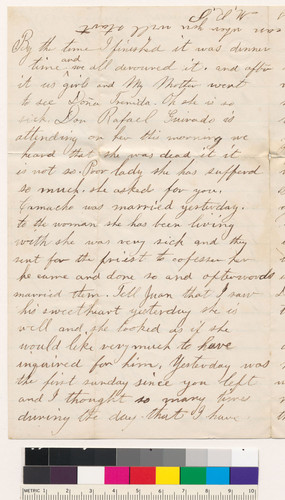 By the time I finished it was dinner
time and we all devoured it. and after
it us girls and My Mother went
to see Doña Trenida. Oh she is so
sick Don Rafael Guirado is
attending on her this morning we
heard that she was dead it it
is not so. Poor lady she has sufferd
so much. she asked for you.
Camacho was married yesterday.
to the woman she has been living
with she was very sick and they
sent for the priest to cofesser her
he came and done so and afterwords
married them. Tell Juan that I saw
his sweetheart yesterday she is
well and she looked as if she
would like very much to have
inquired for him, Yesterday was
the first sunday since you left
and I thought so many times
during the day that I have
METRIC 1 2 3 4 5 6 7 8 9 10